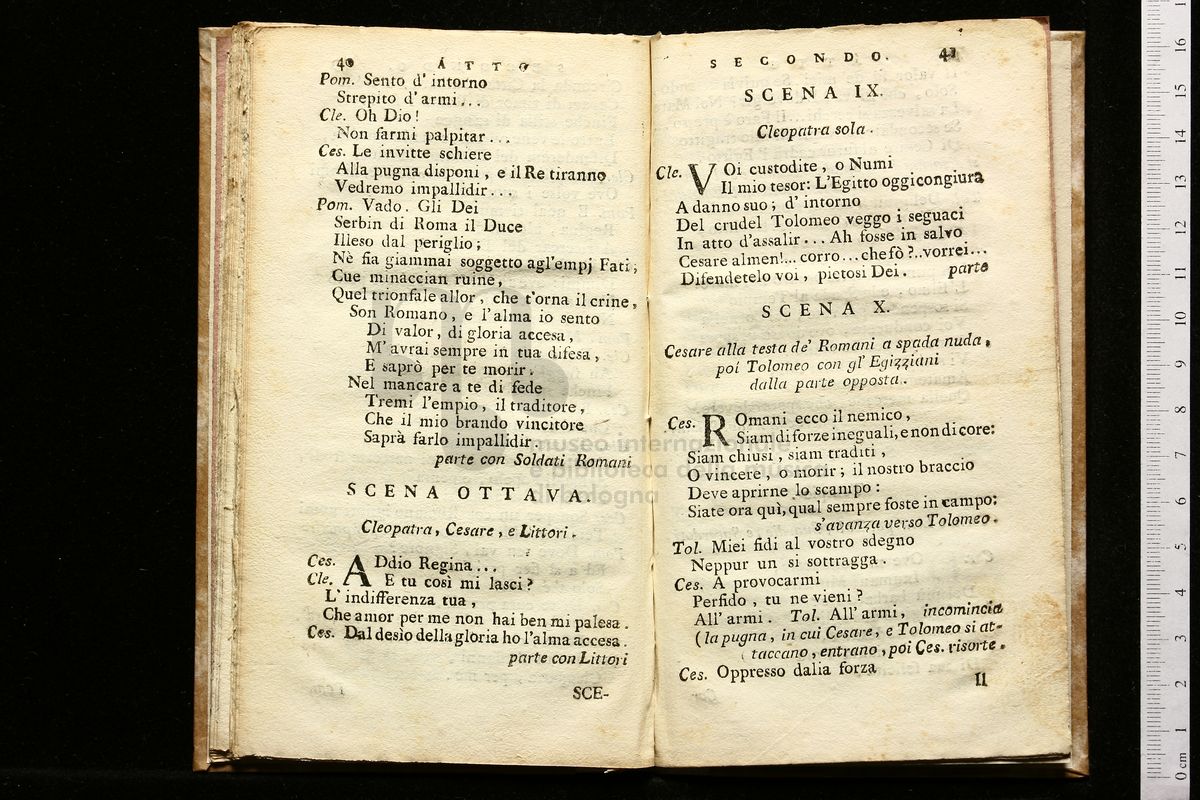 40 ATTO
Pom. Sento d' intorno
Strepito d' armi...
Cle. Oh Dio!
Non farmi palpitar...
Ces. Le invitte schiere
Alla pugna disponi, e il Re tiranno
Vedremo impallidir...
Pom. Vado. Gli Dei
Serbin di Roma il Duce
Illeso dal periglio;
Nè fia giammai soggetto agl'empj Fati;
Cue minaccian ruine,
Quel trionfale allor, che torna il crine,
Son Romano, e l'alma io sento
Di valor, di gloria accesa,
M' avrai sempre in tua difesa,
E saprò per te morir.
Nel mancare a te di fede
Tremi l'empio, il traditore,
Che il mio brando vincitore
Saprà farlo impallidir.
parte con Soldati Romani
SCENA OTTAVA.
Cleopatra, Cesare, e Littori.
Ces. ADdio Regina...
Cle. E tu così mi lasci?
L' indifferenza tua,
Che amor per me non hai ben mi palesa.
Ces. Dal desìo della glòria ho l'alma accesa.
parte con Littori
SCE-
SECONDO. 41
SCENA IX.
Cleopatra sola.
Cle. VOi custodite, o Numi
Il mio tesor: L'Egitto oggi congiura
A danno suo; d' intorno
Del crudel Tolomeo veggo i seguaci
In atto d'assalir... Ah fosse in salvo
Cesare almen!... corro... che fò?.. vorrei...
Difendetelo voi, pietosi Dei. parte
SCENA X.
Cesare alla testa de' Romani a spada nuda,
poi Tolomeo con gl' Egizziani
dalla parte opposta.
Ces. ROmani ecco il nemico,
Siam di forze ineguali, e non di core:
Siam chiusi, siam traditi,
O vincere, o morir; il nostro braccio
Deve aprirne lo scampo:
Siate ora quì, qual sempre foste in campo:
s'avanza verso Tolomeo.
Tol. Miei fidi al vostro sdegno
Neppur un si sottragga.
Ces. A provocarmi
Perfido, tu ne vieni?
All' armi. Tol. All' armi, incomincia
(la pugna, in cui Cesare, e Tolomeo si at-
( taccano, entrano, poi Ces. risorte.
Ces. Oppresso dalia forza
Il
museo internazionale
e biblioteca della musica
di bologna
0 cm 1 2 3 4 5 6 7 8 9 10 11 12 13 14 15 16